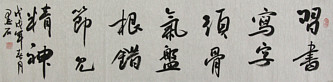 習書
寫字
須骨
氣盤
根錯
節見
精神
戊戌年月
石